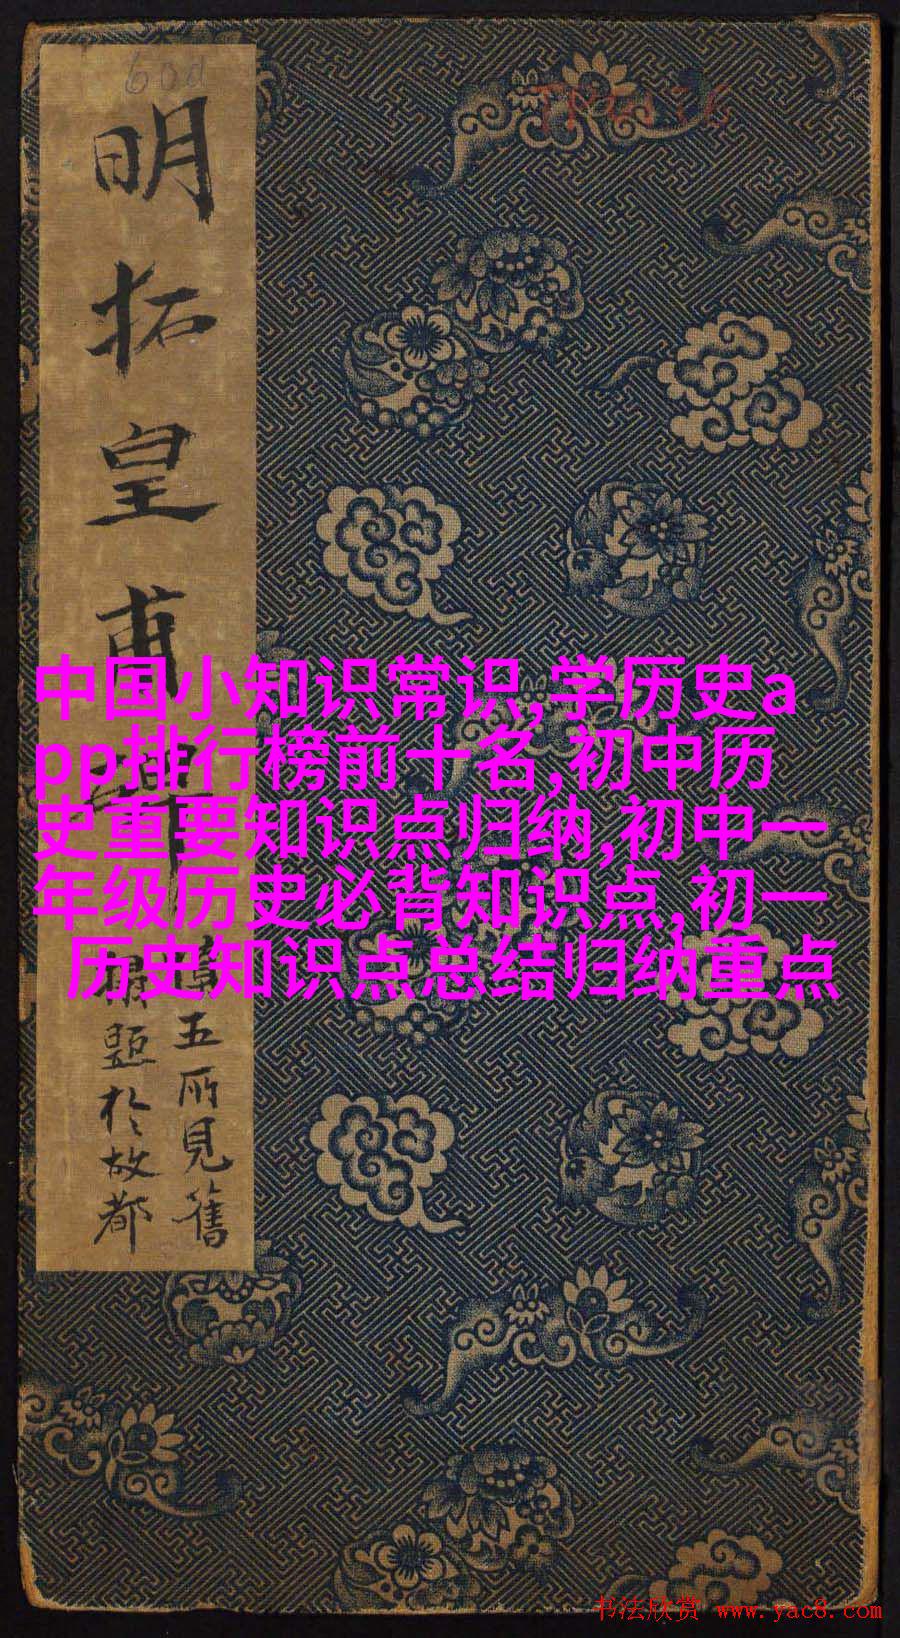 60d
明拓皇甫
五所見舊
題於故都
中国小知识常识,学历史a
pp排行榜前十名,初中历
史重要知识点归纳,初中一
年级历史必背知识点,初一
历史知识点总结归纳重点
书法欣赏 www.yac8.com